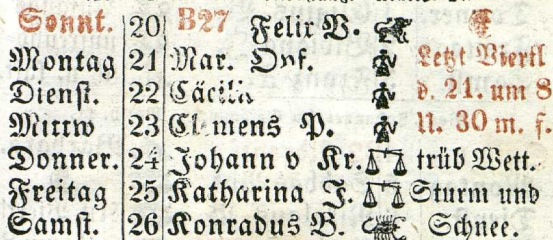 Sonnt. 20 B27 Felix V.
Montag 21 Mar. Opf. Letzt Viertl
Dienst. 22 Cäcilia d. 21. um 8
Mittw 23 Clemens P. U. 30 m. f.
Donner. 24 Johann v Kr. trüb Wett.
Freitag 25 Katharina J. Sturm und
Samst. 26 Konradus B. Schnee.